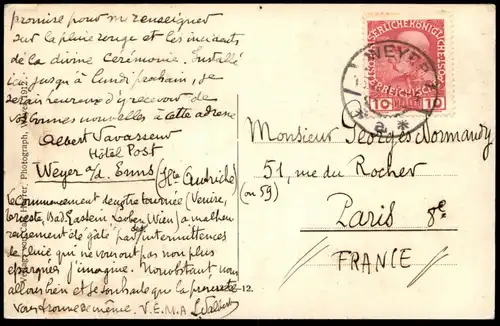 promise pour me renseigner
sur la pluie rouge et les incidents
de la divine Cérémonie. Installé
ici jusqu'à lundi prochain, je
serais heureux d'y recevoir de
vos bonnes nouvelles à cette adresse
Albert Vavasseur
Hôtel Post
Weyer a/d. Enns
(Hte Autriche)
Le Commencement de notre tournée (Venise,
Trieste, Bad Gastein Leoben, Wien) a malheu
reusement été gâté par des intermittences
de pluie qui ne vous ont pas non plus
épargnés j'imagine. Nonobstant nous
allons bien et je souhaite que la présente
vous trouve de même. V.E.M.A
WEYER
10 HELLER 10
Monsieur Georges Normandy
51, rue du Rocher
(ou 59)
Paris 8e
FRANCE